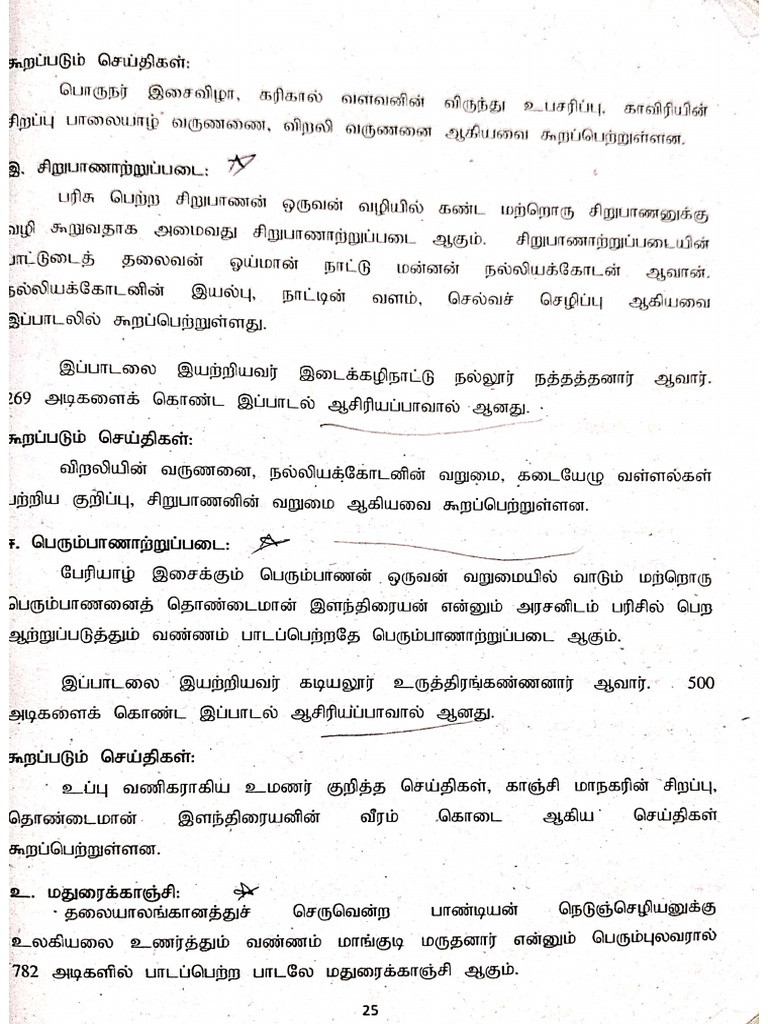 கூறப்படும் செய்திகள்:
பொருநர் இசைவிழா, கரிகால் வளவனின் விருந்து உபசரிப்பு, காவிரியின்
சிறப்பு பாலையாழ் வருணணை, விறலி வருணனை ஆகியவை கூறப்பெற்றுள்ளன.
இ. சிறுபாணாற்றுப்படை:
பரிசு பெற்ற சிறுபாணன் ஒருவன் வழியில் கண்ட மற்றொரு சிறுபாணனுக்கு
வழி கூறுவதாக அமைவது சிறுபாணாற்றுப்படை ஆகும். சிறுபாணாற்றுப்படையின்
பாட்டுடைத் தலைவன் ஒய்மான் நாட்டு மன்னன் நல்லியக்கோடன் ஆவான்.
நல்லியக்கோடனின் இயல்பு, நாட்டின் வளம், செல்வச் செழிப்பு ஆகியவை
இப்பாடலில் கூறப்பெற்றுள்ளது.
இப்பாடலை இயற்றியவர் இடைக்கழிநாட்டு நல்லூர் நத்தத்தனார் ஆவார்.
269 அடிகளைக் கொண்ட இப்பாடல் ஆசிரியப்பாவால் ஆனது.
கூறப்படும் செய்திகள்:
விறலியின் வருணனை, நல்லியக்கோடனின் வறுமை, கடையேழு வள்ளல்கள்
பற்றிய குறிப்பு, சிறுபாணனின் வறுமை ஆகியவை கூறப்பெற்றுள்ளன.
ஈ. பெரும்பாணாற்றுப்படை:
பேரியாழ் இசைக்கும் பெரும்பாணன் ஒருவன் வறுமையில் வாடும் மற்றொரு
பெரும்பாணனைத் தொண்டைமான் இளந்திரையன் என்னும் அரசனிடம் பரிசில் பெற
ஆற்றுப்படுத்தும் வண்ணம் பாடப்பெற்றதே பெரும்பாணாற்றுப்படை ஆகும்.
இப்பாடலை இயற்றியவர் கடியலூர் உருத்திரங்கண்ணனார் ஆவார். 500
அடிகளைக் கொண்ட இப்பாடல் ஆசிரியப்பாவால் ஆனது.
கூறப்படும் செய்திகள்:
உப்பு வணிகராகிய உமணர் குறித்த செய்திகள், காஞ்சி மாநகரின் சிறப்பு,
தொண்டைமான் இளந்திரையனின் வீரம் கொடை ஆகிய செய்திகள்
கூறப்பெற்றுள்ளன.
உ. மதுரைக்காஞ்சி:
தலையாலங்கானத்துச் செருவென்ற பாண்டியன் நெடுஞ்செழியனுக்கு
உலகியலை உணர்த்தும் வண்ணம் மாங்குடி மருதனார் என்னும் பெரும்புலவரால்
782 அடிகளில் பாடப்பெற்ற பாடலே மதுரைக்காஞ்சி ஆகும்.
25